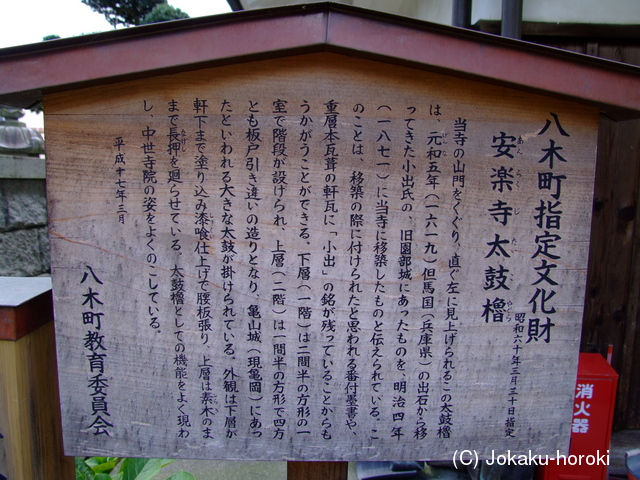 八木町指定文化財
安楽寺太鼓櫓
あんらくじたいこやぐら
昭和六十年三月三十日指定
当寺の山門をくぐり、直ぐ左に見上げられるこの太鼓櫓
は、元和五年（一六一九）但馬国（兵庫県）の出石から移
ってきた小出氏の、旧園部城にあったものを、明治四年
（一八七一）に当寺に移築したものと伝えられている。こ
のことは、移築の際に付けられたと思われる番付墨書や、
重層本瓦葺の軒瓦に「小出」の銘が残っていることからも
うかがうことができる。下層（一階）は二間半の方形の一
室で階段が設けられ、上層（二階）は一間半の方形で四方
とも板戸引き違いの造りとなり、亀山城（現亀岡）にあっ
たといわれる大きな太鼓が掛けられている。外観は下層が
軒下まで塗り込み漆喰仕上げで腰板張り、上層は素木のま
まで長押を廻らせている。太鼓櫓としての機能をよく現わ
し、中世寺院の姿をよくのこしている。
平成十七年三月
八木町教育委員会
消火器
(C) Jokaku-horoki